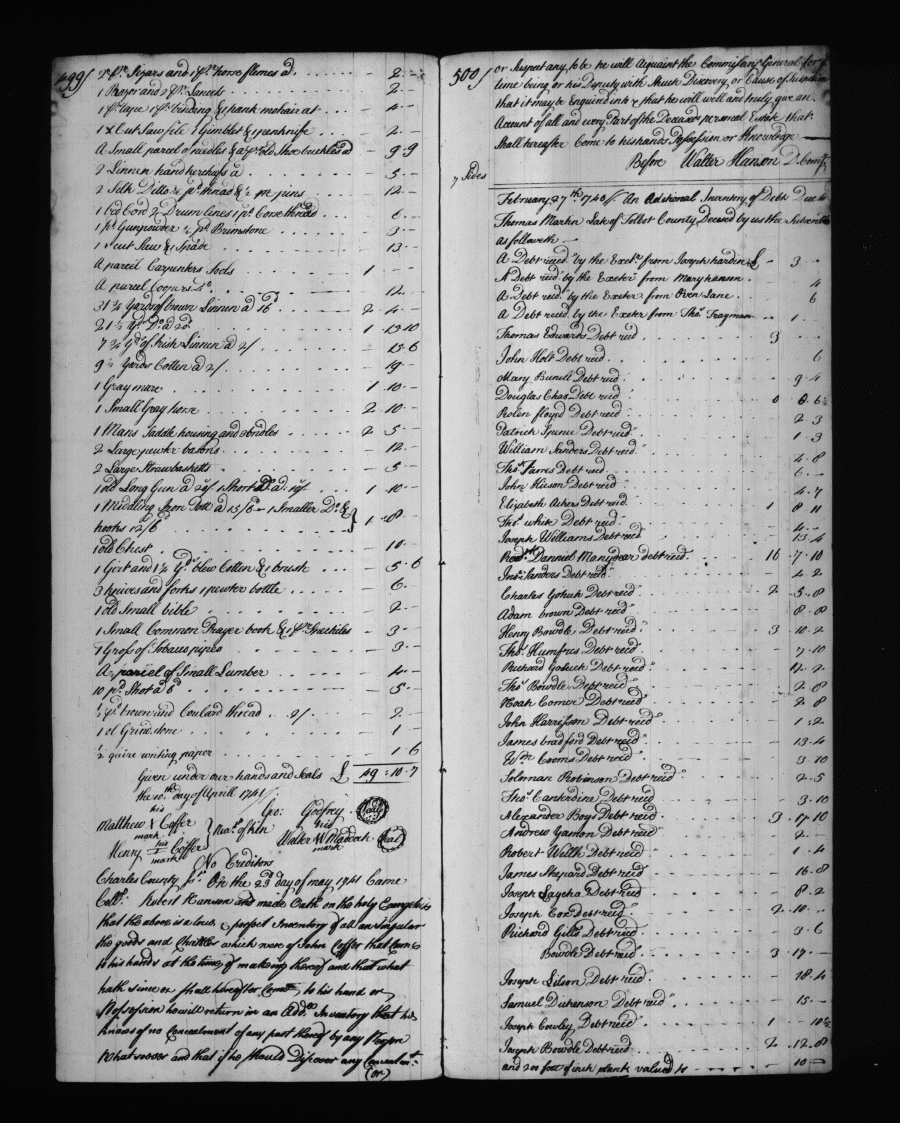 499/ 2 pr. Sizars and 1 pr. horse flemes a - 2 -
1 Razor and 2 Lancets - 2 -
1 ps. tape 1 ps. binding & 1 hank mohair at - 4 -
1 x Cut Saw file 1 Gimblet & 1 penknife - 2 -
A Small parcel of needles & a pr. old Shoe buckles a - 9 9
2 Linnen handkerchefs a - 5 -
2 Silk Ditto ¼ pd. thread & ½ m pins - 12 -
1 bed Cord 2 Drum lines 1 pd. Corse thread - 6 -
1 pd. Gunpowder ½ pd. Brimstone - 3 -
1 Scut Saw & 1 Spade - 13 -
A parcel Carpenters Tools 1 - -
A parcel Coopers do. - 12 -
31 ½ Yards of brown Linnen a 16d 2 4 -
21 ½ yds. Do. a 22d 1 19 10
7 ¾ yds. of Irish Linnen a 2/ - 15 6
9 ½ Yards Cotten a 2/ - 19 -
1 Gray mare 1 10 -
1 Small Gray horse 2 10 -
1 Mans Saddle housing and 2 bridles 2 5 -
2 Large pewter basons - 12 -
2 Large Straw basketts - 5 -
1 old Long Gun a 20/ 1 Short Do. a 10/ 1 10 -
1 Middling Iron Pott a 15/6 - 1 Smaller Do. &
hooks 12/6 } 1 - 8 -
1 old Chest - 10 -
1 Girt and 1 ½ yds. blew Cotten & 1 brush - 5 - 6
3 knives and forks 1 pewter bottle - 6 -
1 old Small bible - 2 -
1 Small Common Prayer book & 1 pr. Speckles - 3 -
1 Gross of Tobacco pipes - 3 -
A parcel of Small Lumber - 4 -
10 pd. Shot a 6d - 5 -
½ pd. brown and Coulard thread 2/ - 2 -
1 old Grindstone - 1 -
½ quire writing paper - 1 6
Given under our hands and Seals £ 49 : 10 - 7
the 10th. day of Aprill 1741/
Matthew his X mark Coffer
Henry his mark Coffer } nearst of kin
Geo: Godfrey (Seal)
Walter his W mark Maddock (Seal)
No Creditors
Charles County Sc. On the 23d day of may 1741 Came
Robert Hanson and made Oath on the holy Evangelists
that the above is a true & perfect Inventory of all and singular
the goods and Chattles which were of John Coffer that Came
to his hands at the time of making thereof and that what
hath since or shall hereafter Come to his hand or
Possession he will return in an Addl. Inventory that he
knows of no Concealment of any part thereof by any Person
Whatsoever and that if he Should Discover any Concealmt.
(or)
500/ or Suspect any to be he will Acquaint the Commissary General for ye
time being or his Deputy with Such Discovery or Cause of Suspicion
that it may be Enquired into & that he will well and truly give an
Account of all and every Part of the Deceaseds personal Estate that
Shall hereafter Come to his hands Possession or Knowledge
Before Walter Hanson D. Comry.
7 Sides
February 27th. 1740/1. An Additional Inventory of Debts Due to
Thomas Martin Late of Talbot County Deceasd by us the Subscribers
as followeth
A Debt reced. by the Exetr. from Joseph hardin £ - 3 -
A Debt recd. by the Exeter from Mary hanson 4
A Debt recd. by the Exeter from Owen Lane 6
A Debt recd by the Exeter from Thos. Frayman - 1 -
Thomas Edwards Debt recd 3 - -
John Holt Debt recd 6
Mary Bunell Debt recd - 9 - 4
Douglas Chas Debt recd 0 8 - 6½
Rolen floyd Debt recd - 2 3
Patrick Debt recd - 1 - 3
William Sanders Debt recd 4 - 8
Thos. James Debt recd 6 -
John Hixson Debt recd 4 - 7
Elizabeth Debt recd 1 8 11
Thos. White Debt recd 4 -
Joseph Williams Debt recd - 13 - 4
Revd. Danniel Manydear debt recd 16 - 7 - 10
Jno. Sanders Debt recd - 4 - 2
Charles Debt recd 2 - 5 - 8
Adam brown Debt recd 8 - 8
Henry Bowdle Debt recd 3 - 10 - 2
Thos. Humfres Debt recd - 7 - 10
Richard Debt recd 12 - 2
Thos. Bowdle Debt recd - 2 - 8
Noah Corner Debt recd - 2 - 8
John Harrisson Debt recd - 1 : 2
James bradford Debt recd - 13 - 4
Wm. Cooms Debt recd - 3 10
Soloman Robinson Debt recd - 2 - 5
Thos. Debt recd - 3 - 10
Alexander Boys Debt recd 3 - 17 10
Andrew Gamon Debt recd - 2 -
Robert Debt recd - 1 - 4
James Shepard Debt recd 16 - 8
Joseph Debt recd - 8 - 2
Joseph Debt recd 2 - 10 -
Richard Gills Debt recd - 3 - 6
Bowdle Debt recd 3 - 17 -
Joseph Debt recd 18 - 4
Samuel Dickenson Debt recd - 15 -
Joseph Cowley Debt recd 1 - 10½
Joseph Bowdle Debt recd 2 - 12 - 8
and 200 foot of inch plank valued to - 10 -